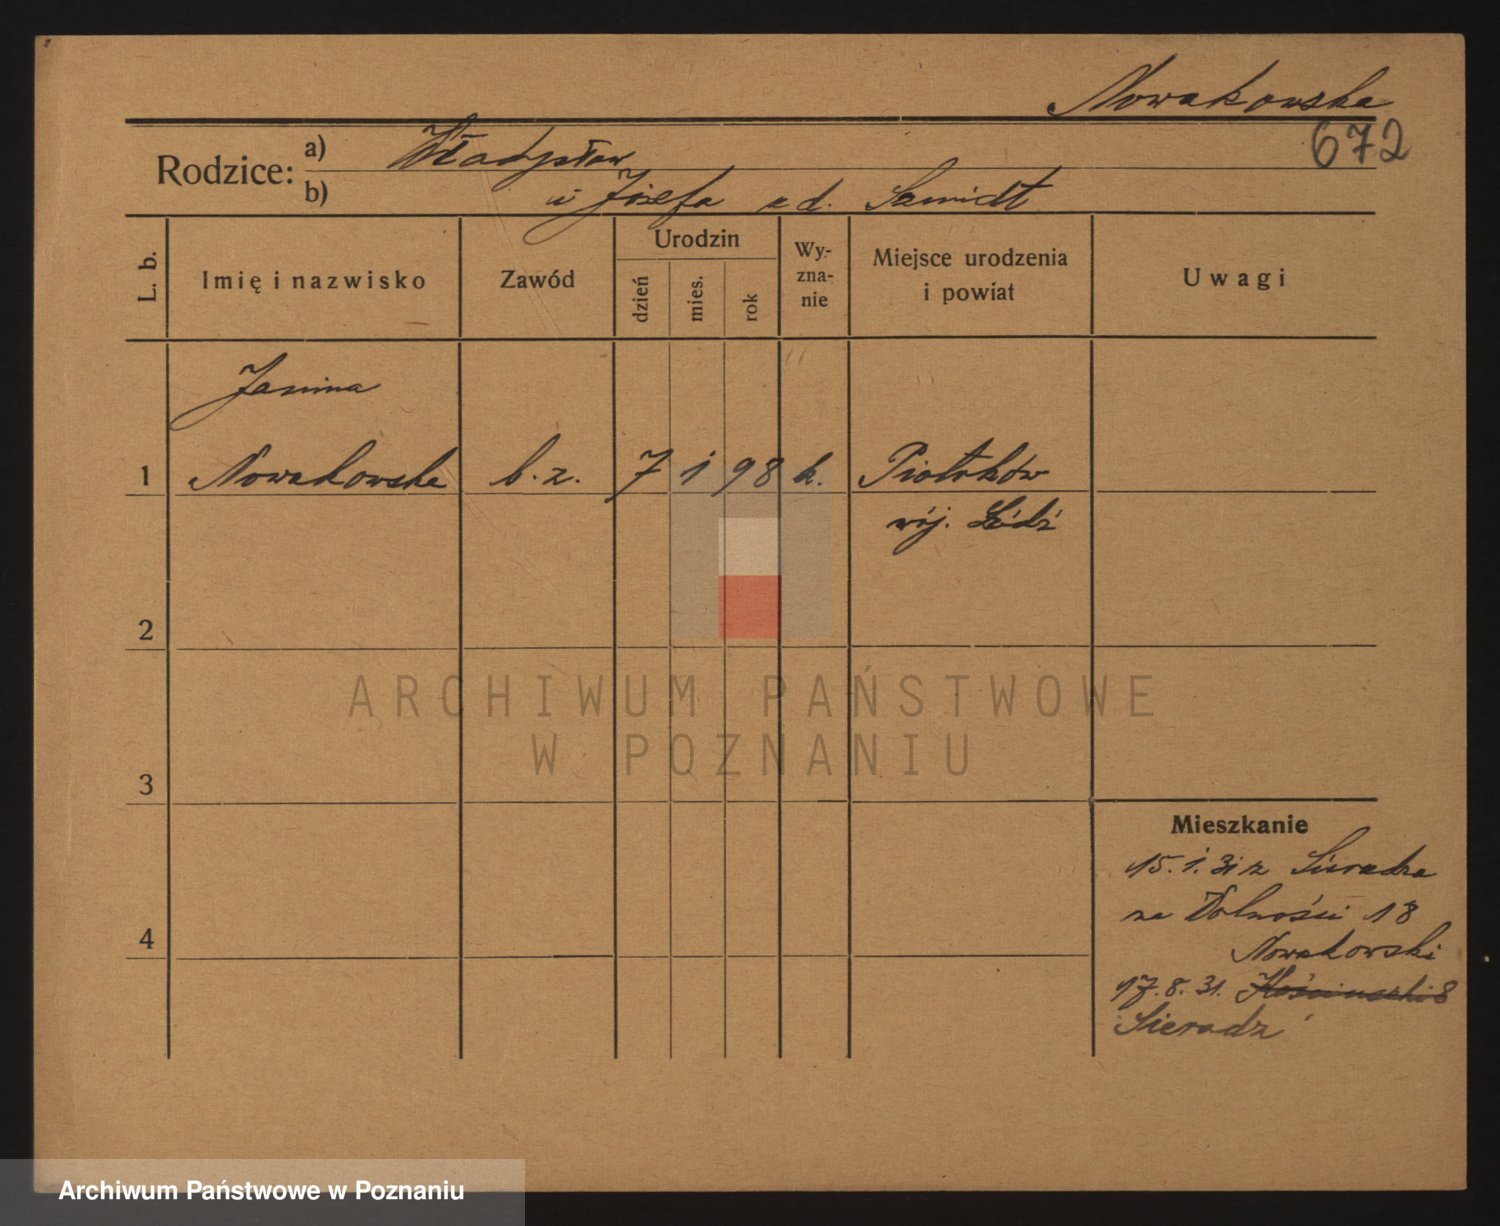 Nowakowska
672
Rodzice: a) Władysław
b) i Józefa z d. Szmidt
L. b. Imię i nazwisko Zawód Urodzin dzień mies. rok Wy-zna-nie Miejsce urodzenia i powiat Uwagi
Janina
1 Nowakowska b. z. 7 1 98 k. Piotrków
woj. Łódź
2
ARCHIWUM PAŃSTWOWE
W POZNANIU
3
Mieszkanie
15. 1. 31 z Sieradza
na Wolności 18
4
Nowakowski
17. 8. 31. Kościuszki 8
Sieradz
Archiwum Państwowe w Poznaniu